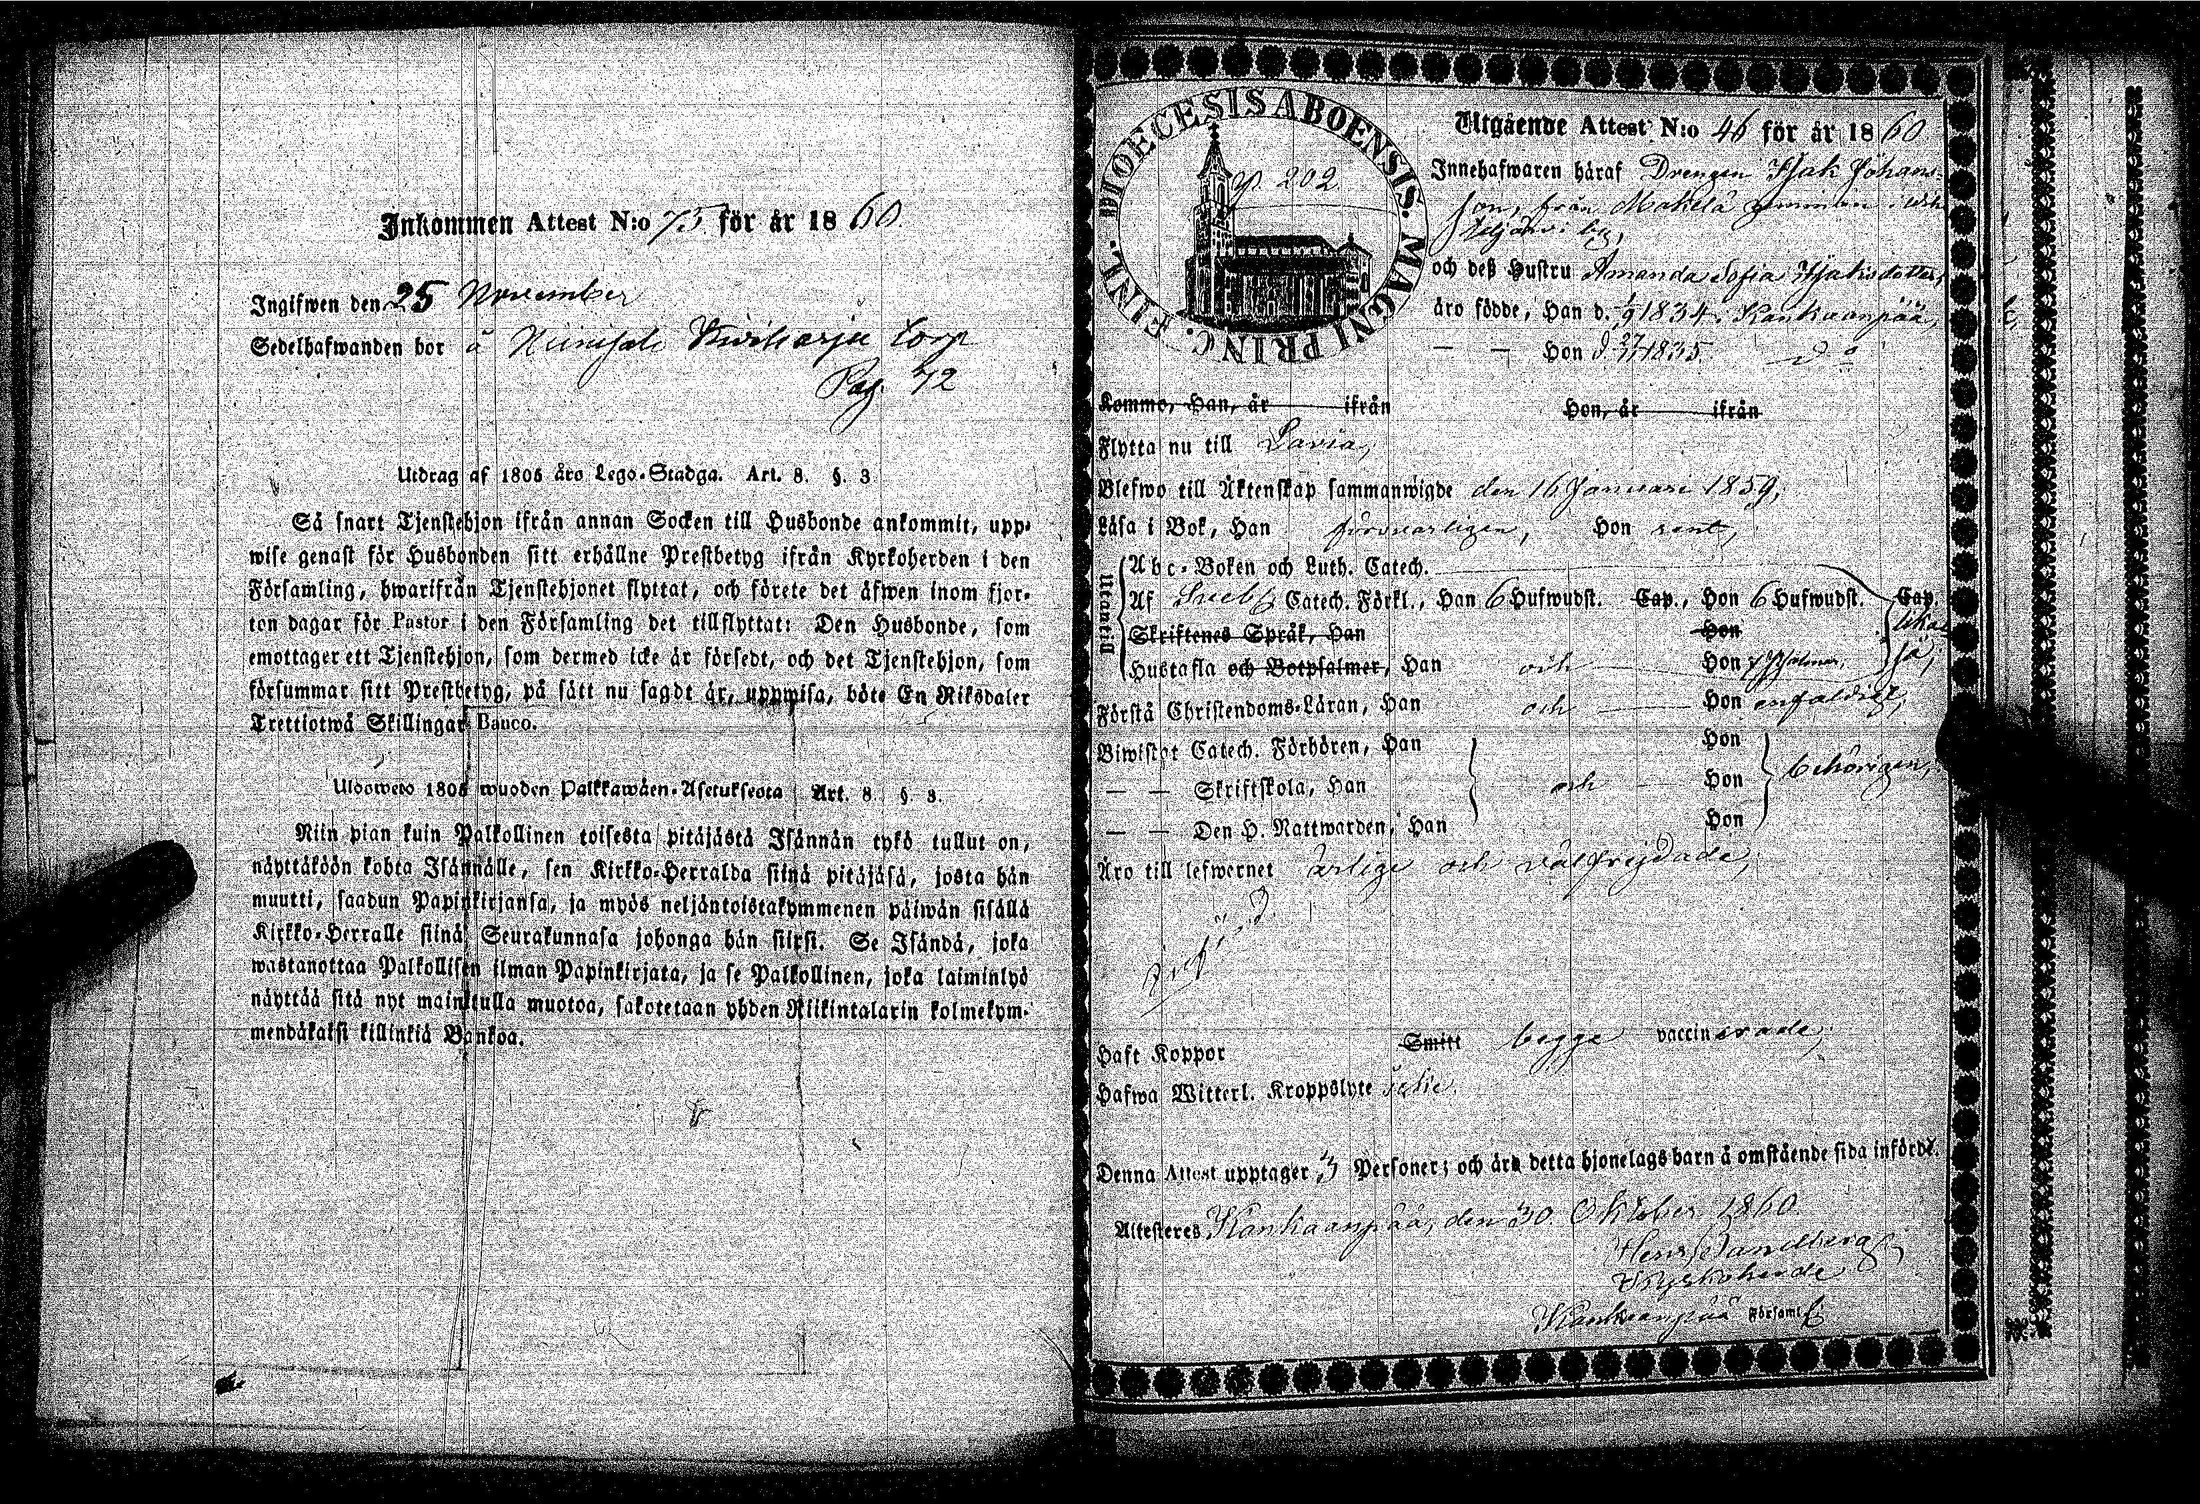 Inkommen Attest N:o 75 för år 1860.
Ingifwen den 25 November
Sedelhafwanden bor å Torp
Pag. 72
Utdrag af 1805 års Lego-Stadga. Art. 8. §. 3.
Så snart Tjenstehjon ifrån annan Socken till Husbonde ankommit, upp-
wise genast för Husbonden sitt erhållne Prestbetyg ifrån Kyrkoherden i den
Församling, hwarifrån Tjenstehjonet flyttat, och förete det äfwen inom fjor-
ton dagar för Pastor i den Församling det tillflyttat: Den Husbonde, som
emottager ett Tjenstehjon, som dermed icke är försedt, och det Tjenstehjon, som
försummar sitt Prestbetyg, på sätt nu sagdt är, uppwisa, böte En Riksdaler
Trettiotwå Skillingar Banco.
Ulosweto 1805 wuoden Palkkawäen-Asetuksesta Art. 8. §. 3.
Niin pian kuin Palkollinen toisesta pitäjästä Isännän tykö tullut on,
näyttäköön kohta Isännälle, sen Kirkko-Herralda siinä pitäjäsä, josta hän
muutti, saadun Papinkirjansa, ja myös neljäntoistakymmenen päiwän sisällä
Kirkko-Herralle siinä Seurakunnasa johonga hän siirsi. Se Isändä, joka
wastanottaa Palkollisen ilman Papinkirjata, ja se Palkollinen, joka laiminlyö
näyttää sitä nyt mainitulla muotoa, sakotetaan yhden Riikintalarin kolmekym-
mendäkaksi killinkiä Bankoa.
DIOECESIS ABOENSIS. MAGNI PRINC. FINL.
p 202
Utgående Attest N:o 46 för år 1860
Innehafwaren häraf Drengen Isak Johans-
son, från Makelä i
by,
och deß Hustru Amanda Sofia Isaksdotter,
äro födde, Han d. 1/9 1834. Kankaanpää,
— — Hon d. 1835. d:o
Kommo, Han, år ifrån Hon, år ifrån
Flytta nu till Lavia,
Blefwo till Äktenskap sammanwigde den 16 Januari 1859,
Läsa i Bok, Han försvarligen, Hon rent,
Utantill
Abc-Boken och Luth. Catech.
Af Sveb. Catech. Förkl., Han 6 Hufwudst. Cap., Hon 6 Hufwudst. Cap.
Skriftenes Språk, Han Hon likaså,
Hustafla och Botpsalmer, Han och Hon 7 Psalmer,
Förstå Christendoms-Läran, Han och Hon enfaldigt,
Biwistat Catech. Förhören, Han Hon
— — Skriftskola, Han och Hon behörigen,
— — Den H. Nattwarden, Han Hon
Äro till lefwernet ärlige och välfrejdade,
Haft Koppor Smitt begge vaccinerade,
Hafwa Witterl. Kroppslyte icke.
Denna Attest upptager 3 Personer; och äro detta hjonelags barn å omstående sida införde.
Attesteres Kankaanpää, den 30 Oktober 1860.
Henr. Sandberg
Kyrkoherde
Kankaanpää Församl.